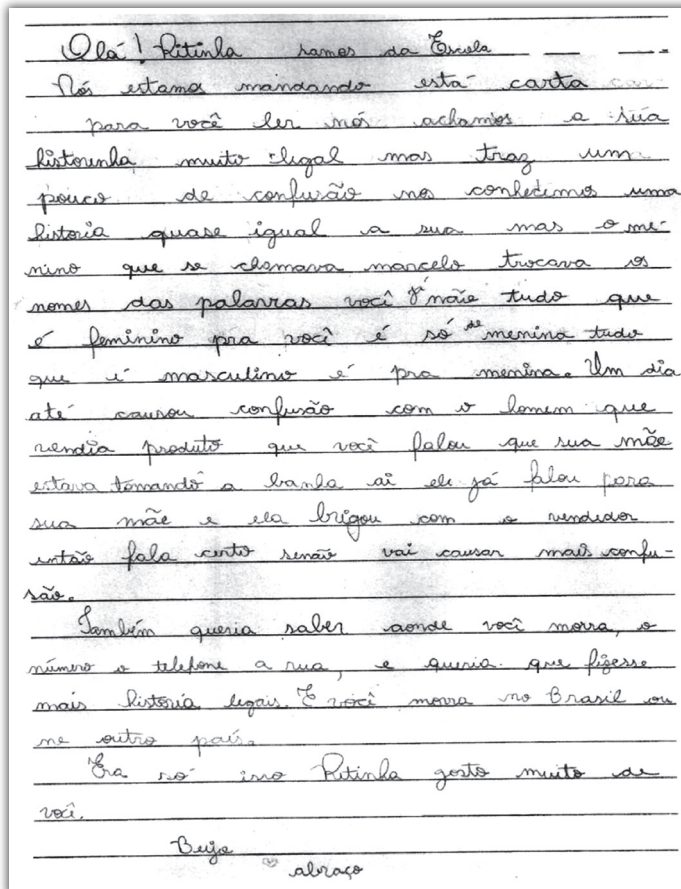 Olá! Ritinha somos da Escola
Nós estamos mandando está carta
para você ler nós achamos a sua
historinha muito legal mas traz um
pouco de confusão nos conhecemos uma
historia quase igual a sua mas o me-
nino que se chamava marcelo trocava os
nomes das palavras você já não tudo que
é feminino pra você é só de menina tudo
que é masculino é pra menino. Um dia
até causou confusão com o homem que
vendia produto que você falou que sua mãe
estava tomando a banha ai ele já falou para
sua mãe e ela brigou com o vendedor
então fala certo senão vai causar mais confu-
são.
Também queria saber aonde você morra, o
número o telefone a rua, e queria que fizesse
mais historia legais. E você morra no Brasil ou
ne outro país.
Era só isso Ritinha gosto muito de
você.
Beijo
abraço